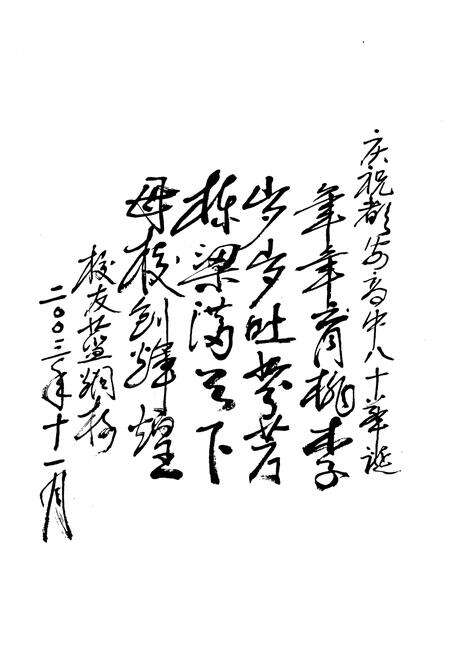 庆祝都安高中八十华诞
年年育桃李
岁岁吐芬芳
栋梁满天下
母校创辉煌
校友蓝
二００三年十一月